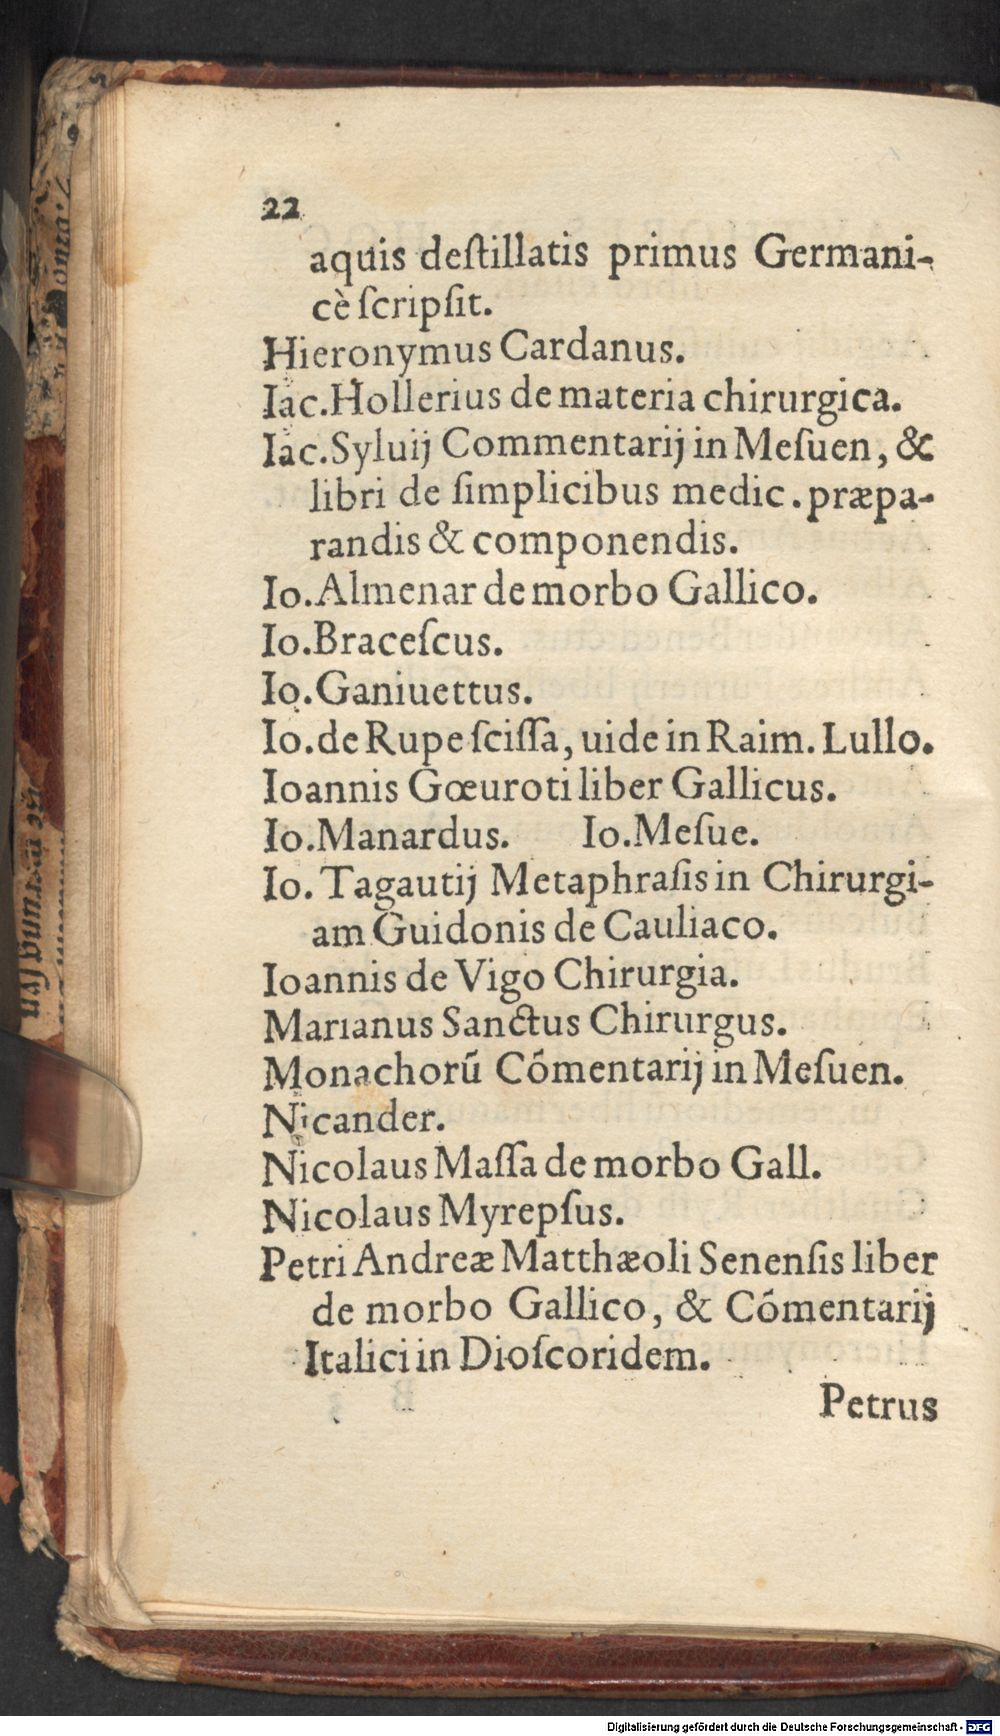 22
aquis deſtillatis primus Germani-
cè ſcripſit.
Hieronymus Cardanus.
Iac.Hollerius de materia chirurgica.
Iac.Syluij Commentarij in Meſuen, &
libri de ſimplicibus medic. præpa-
randis & componendis.
Io.Almenar de morbo Gallico.
Io.Braceſcus.
Io.Ganiuettus.
Io.de Rupe ſciſſa, uide in Raim. Lullo.
Ioannis Gœuroti liber Gallicus.
Io.Manardus. Io.Meſue.
Io. Tagautij Metaphraſis in Chirurgi-
am Guidonis de Cauliaco.
Ioannis de Vigo Chirurgia.
Marianus Sanctus Chirurgus.
Monachorũ Cõmentarij in Meſuen.
Nicander.
Nicolaus Maſſa de morbo Gall.
Nicolaus Myrepſus.
Petri Andreæ Matthæoli Senenſis liber
de morbo Gallico, & Cõmentarij
Italici in Dioſcoridem.
Petrus
Digitalisierung gefördert durch die Deutsche Forschungsgemeinschaft - DFG